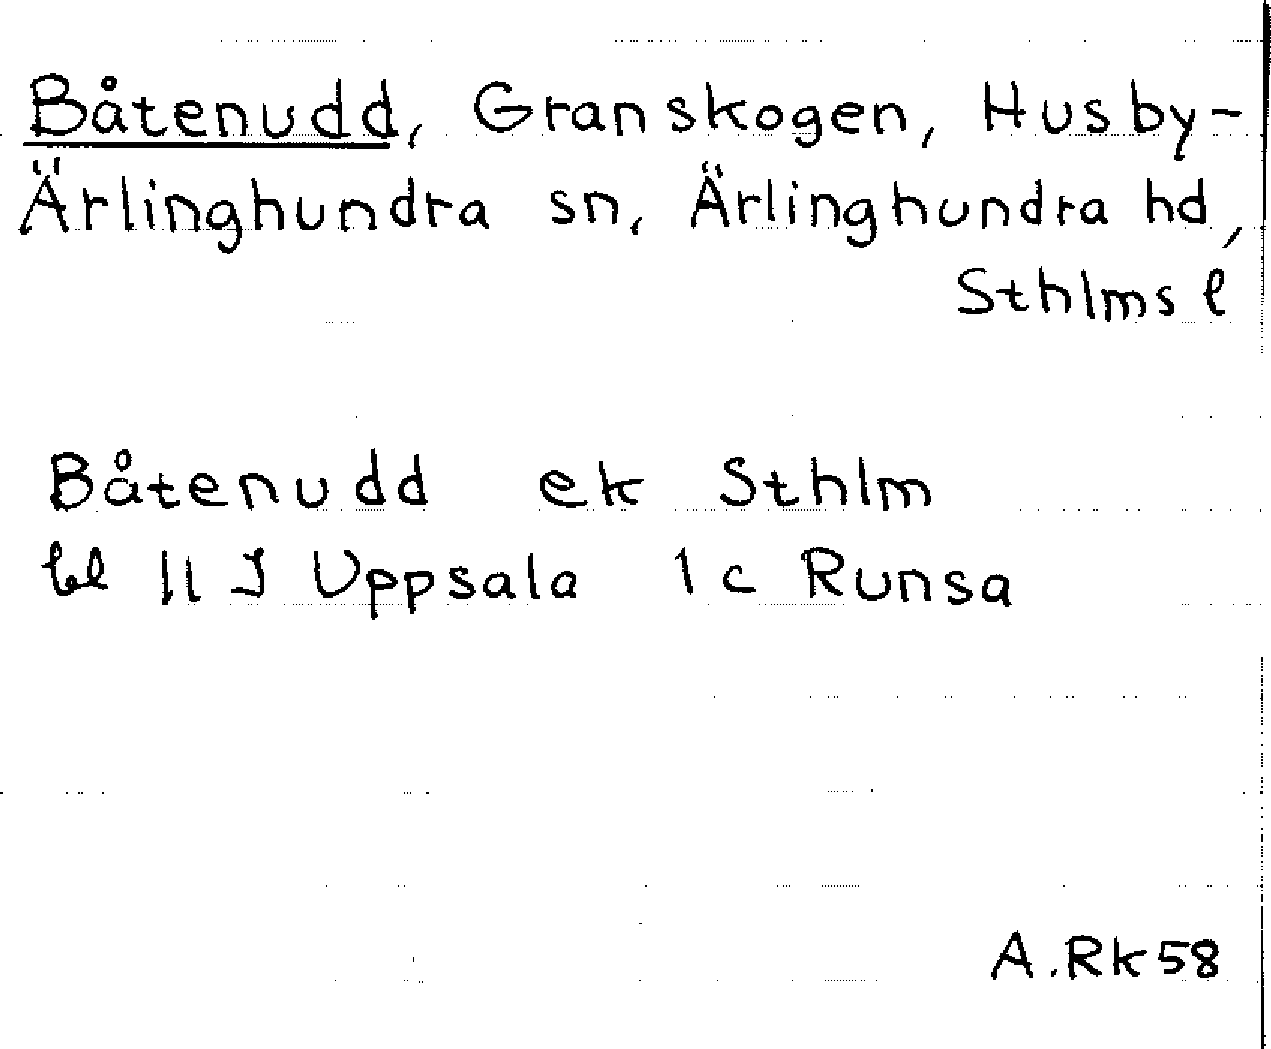 Båtenudd, Granskogen, Husby-
Ärlinghundra sn, Ärlinghundra hd,
Sthlms l
Båtenudd ek Sthlm
bl 11 I Uppsala 1 c Runsa
A.Rk 58